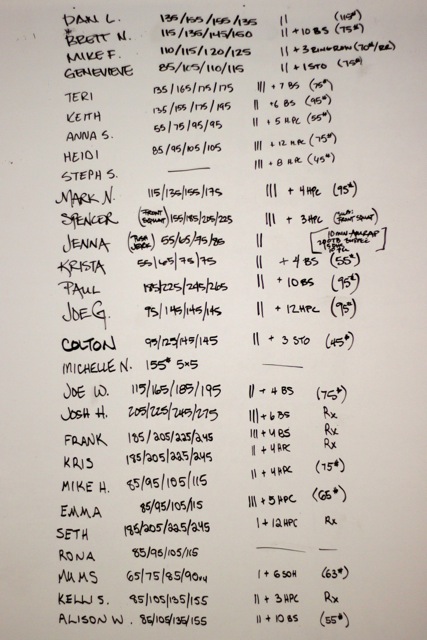 DAN L. 135/155/155/135 || (115#)
BRETT N. 115/135/145/150 || + 10 BS (75#)
MIKE F. 110/115/120/125 || + 3 RING ROW (70#/RR)
GENEVIEVE 85/105/110/115 || + 1 STO (75#)
TERI 135/165/175/175 ||| + 7 BS (75#)
KEITH 135/155/175/195 || +6 BS (95#)
ANNA S. 55/75/95/95 || + 5 HPC (55#)
HEIDI 85/95/105/105 ||| + 12 HPC (75#)
STEPH S. —— ||| + 8 HPC (45#)
MARK N. 115/135/155/175 ||| + 4 HPC (95#)
SPENCER (FRONT SQUAT) 155/185/205/225 ||| + 3 HPC (FRONT SQUAT)
JENNA (PUSH JERK) 55/65/75/85 || [10 MIN AMRAP
KRISTA 55/65/75/75 || + 4 BS (55#)
PAUL 185/225/245/265 || + 10 BS (95#)
JOE G. 95/145/145/145 || + 12 HPC (95#)
COLTON 95/125/145/145 || + 3 STO (45#)
MICHELLE N. 155# 5x5 ——
JOE W. 115/165/185/195 || + 4 BS (75#)
JOSH H. 205/225/245/275 ||| + 6 BS Rx
FRANK 185/205/225/245 ||| + 4 BS Rx
KRIS 185/205/225/245 || + 4 HPC Rx
MIKE H. 85/95/105/115 || + 4 HPC (75#)
EMMA 85/95/105/115 ||| + 5 HPC (65#)
SETH 185/205/225/245 | + 12 HPC Rx
RONA 85/95/105/115 —— ——
MUMS 65/75/85/90 | + 6 SOH (63#)
KELLI S. 85/105/135/155 || + 3 HPC Rx
ALISON W. 85/105/135/155 || + 10 BS (55#)